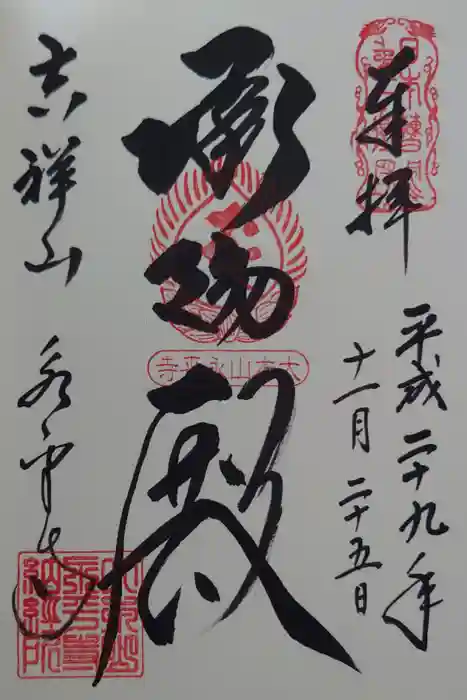 奉拝
平成二十九年
十一月二十五日
承陽殿
大本山永平寺
吉祥山
永平寺